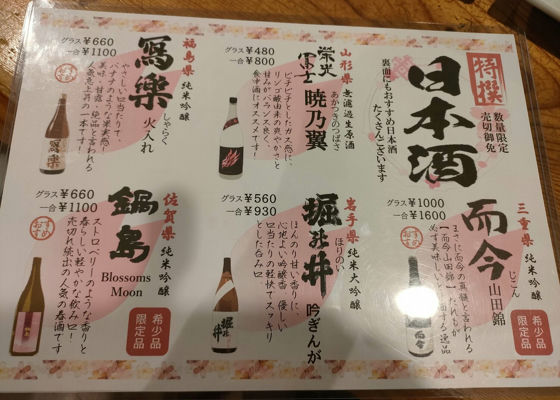 特撰
日本酒
数量限定
売切御免
裏面にもおすすめ日本酒
たくさんございます
山形県 無濾過生原酒
栄光冨士 暁乃翼
あかつきのつばさ
グラス¥480
一合¥800
ピチピチとしたガス感に、
リンゴ酸由来の爽やかさと
甘みがバランス良く、
食中酒にオススメ!
福島県 純米吟醸
寫樂 火入れ
しゃらく
グラス¥660
一合¥1100
やさしい口当たりで、
バナナのような果実感!
美味、甘露、絶品と言われる
人気急上昇の一本です!
三重県 純米吟醸
而今 山田錦
じこん
グラス¥1000
一合¥1600
まさに而今の真髄と言われる
【而今山田錦】だれもが
必ず美味しいと絶賛する逸品
おすすめ
希少品
限定品
岩手県 純米大吟醸
堀の井 吟ぎんが
ほりのい
グラス¥560
一合¥930
ほんのり甘い香りに、
心地よい吟醸香、優しい
口当たりの軽快でスッキリ
とした呑み口
佐賀県 純米吟醸
鍋島
Blossoms
Moon
グラス¥660
一合¥1100
ストロベリーのような香りと
春らしい軽やかな飲み口!
売切れ続出の人気の春酒です
おすすめ
希少品
限定品